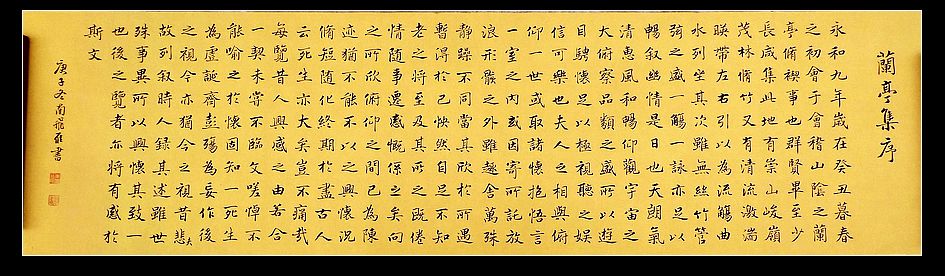 蘭亭集序
永和九年歲在癸丑暮春
之初會于會稽山陰之蘭
亭脩禊事也群賢畢至少
長咸集此地有崇山峻嶺
茂林脩竹又有清流激湍
暎帶左右引以為流觴曲
水列坐其次雖無絲竹管
弦之盛一觴一詠亦足以
暢敘幽情是日也天朗氣
清惠風和暢仰觀宇宙之
大俯察品類之盛所以遊
目騁懷足以極視聽之娛
信可樂也夫人之相與俯
仰一世或取諸懷抱悟言
一室之內或因寄所託放
浪形骸之外雖趣舍萬殊
靜躁不同當其欣於所遇
暫得於己怏然自足不知
老之將至及其所之既倦
情隨事遷感慨係之矣向
之所欣俯仰之間已為陳
迹猶不能不以之興懷況
脩短隨化終期於盡古人
云死生亦大矣豈不痛哉
每覽昔人興感之由若合
一契未嘗不臨文嗟悼不
能喻之於懷固知一死生
為虛誕齊彭殤為妄作後
之視今亦猶今之視昔悲夫
故列敘時人錄其述雖世
殊事異所以興懷其致一
也後之覽者亦將有感於
斯文
庚子冬書